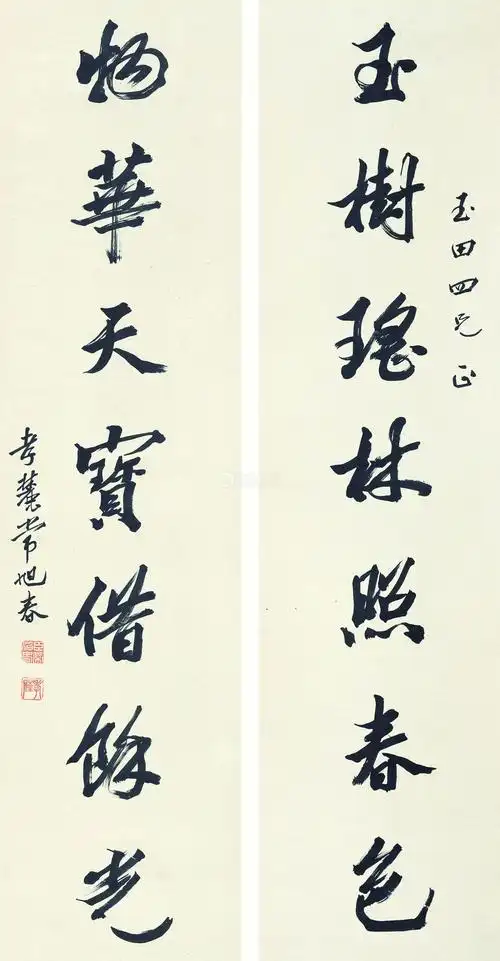 玉樹瑤林照春色
玉田四兄正
物華天寶借餘光
孝麓常旭春